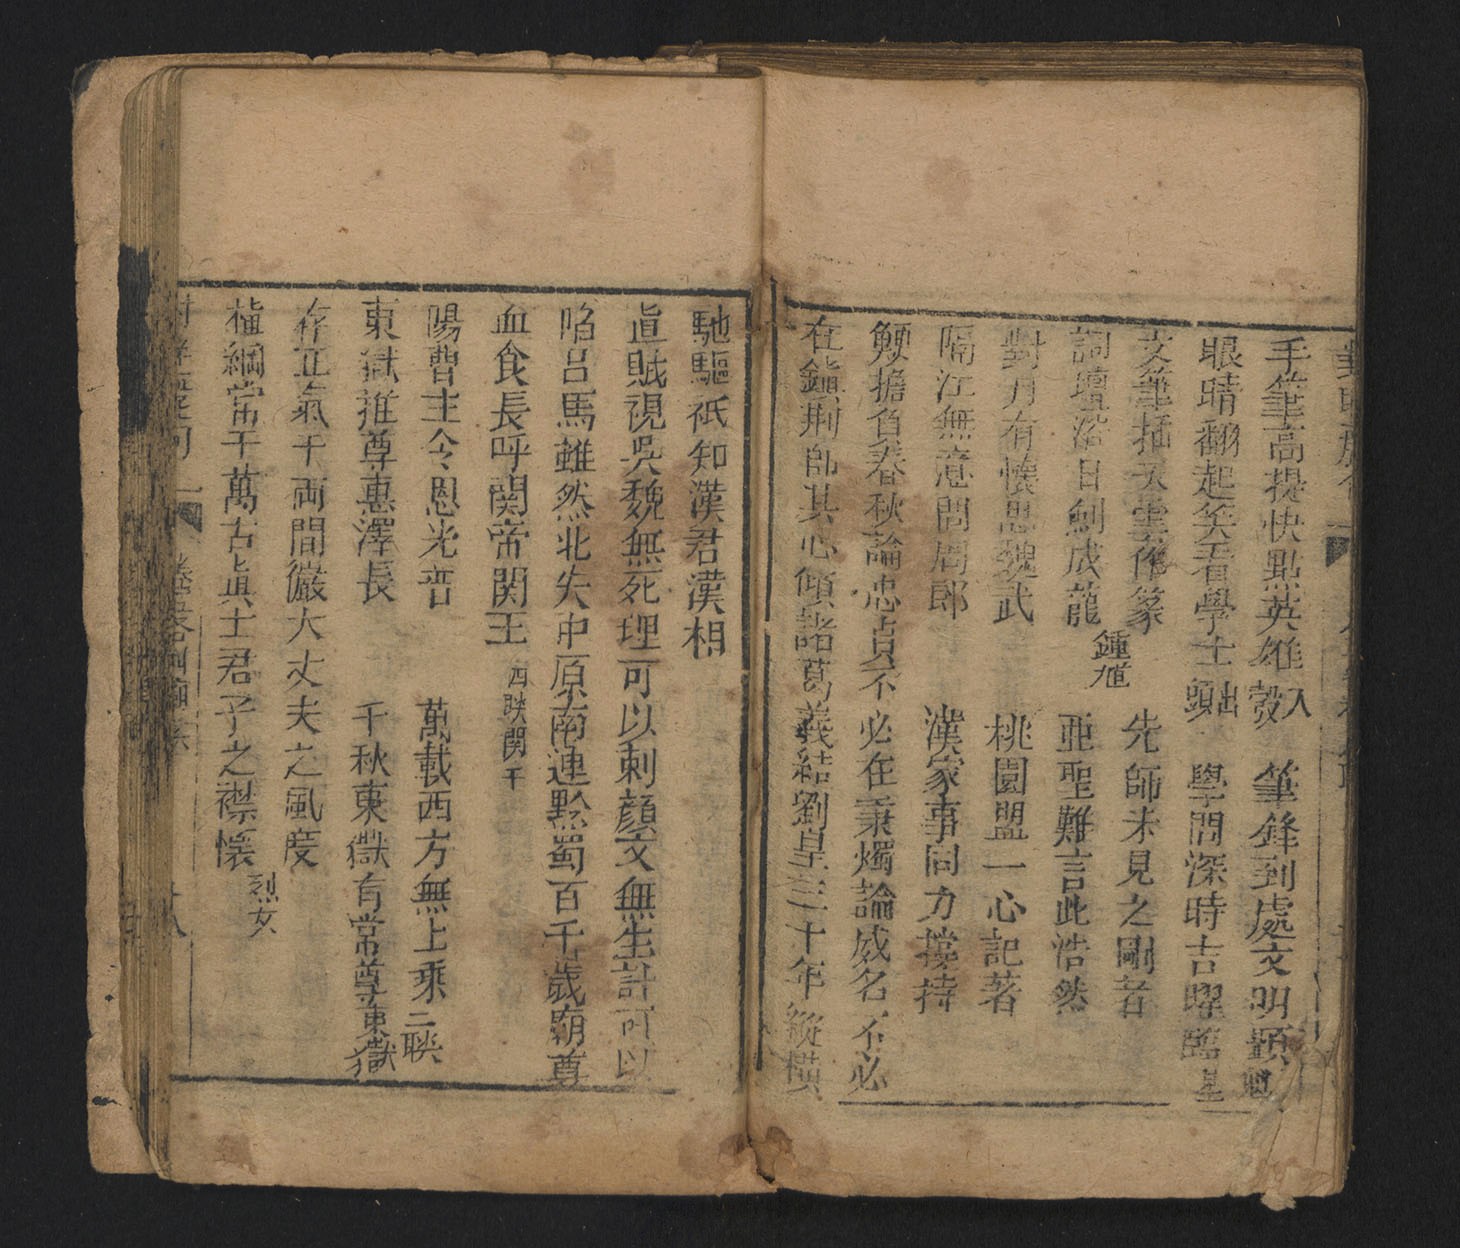 手筆高提快點英雄入彀 筆鋒到處文明顯 魁
眼睛翻起笑看學士出頭 學問深時吉曜臨 星
文筆插天雲作篆 先師未見之剛者
詞壇浴日劍成龍 鍾馗 亞聖難言此浩然
對月有懷思魏武 桃園盟一心記著
隔江無意問周郎 漢家事同力撐持
鯁擔負春秋論忠貞不必在秉燭論威名不必
在鎖荆師其心傾諸葛義結劉皇三十年縱横
馳驅祇知漢君漢相
眞賊視吳魏無死理可以刺顏文無生計可以
陷呂馬雖然北失中原南連黔蜀百千歲廟尊
血食長呼関帝関王 四聫関干
陽曹主令恩光普 萬載西方無上乘 二聫
東嶽推尊惠澤長 千秋東嶽有常尊 東嶽
存正氣于両間儼大丈夫之風度
植綱常于萬古眞士君子之襟懷 烈女
十八